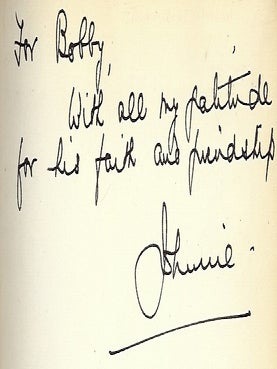 For Bobby,
With all my gratitude
for his faith and friendship
Johnnie -